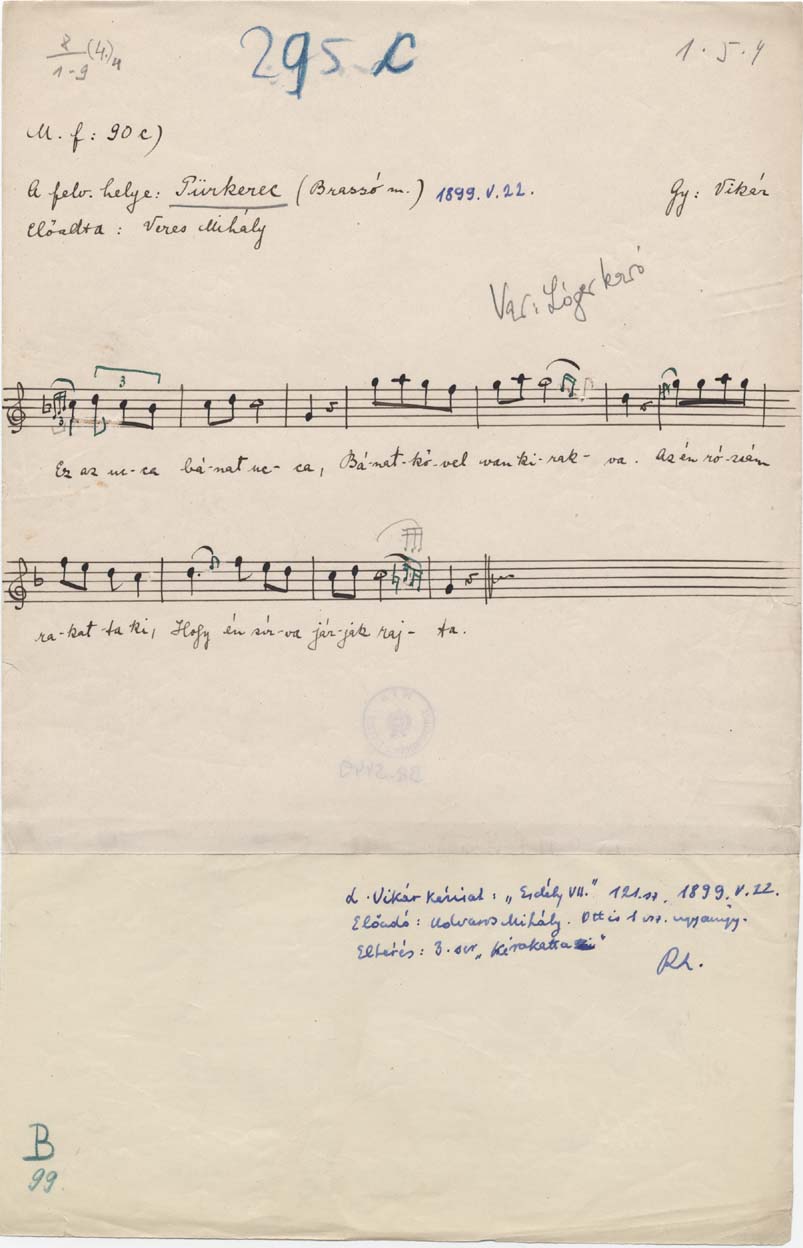 8/1-9 (4.)4
295 c
1 . 5 . 4
M. f: 90 c)
A felv. helye: Türkerec (Brassó m.) 1899. V. 22. Gy: Vikár
Előadta: Veres Mihály
Var:
3
3
Ez az uc-ca bá-nat uc-ca, Bá-nat-kő-vel van ki-rak-va. Az én ró-zsám
ra-kat-ta ki, Hogy én sír-va jár-ják raj-ta.
L. Vikár kézirat: „Erdély VII." 121. sz. 1899. V. 22.
Előadó: Udvaros Mihály. Ott is 1 vsz. ugyanígy.
Eltérés: 3. sor „Kirakatta
B
99.